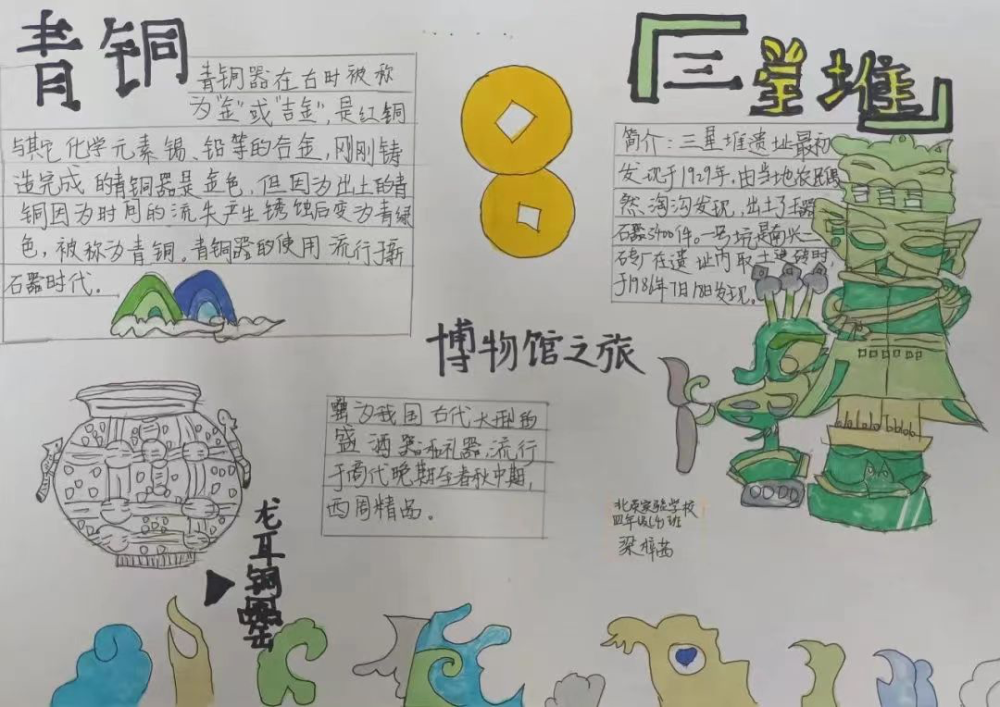 青铜
青铜器在古时被称
为"金"或"吉金",是红铜
与其它化学元素锡、铅等的合金,刚刚铸
造完成的青铜器是金色,但因为出土的青
铜因为时间的流失产生锈蚀后变为青绿
色,被称为青铜。青铜器的使用流行于新
石器时代。
『三星堆』
简介:三星堆遗址最初
发现于1929年,由当地农民偶
然淘沟发现,出土了玉器
石器3400件。一号坑是南兴二
砖厂在遗址内取土烧砖时,
于1986年7月18日发现。
博物馆之旅
罍为我国古代大型的
盛酒器和礼器,流行
于商代晚期至春秋中期,
西周精品。
龙耳铜罍
北京实验学校
四年级
梁梓茜